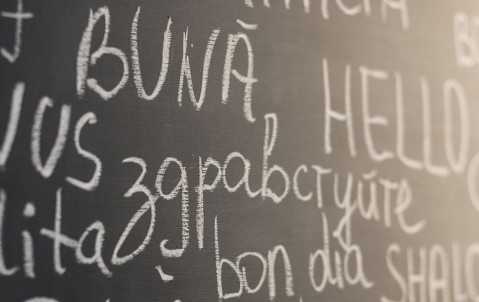 BUNĂ
HELLO
US
здравстуйте
lita
bon dia
SHALO